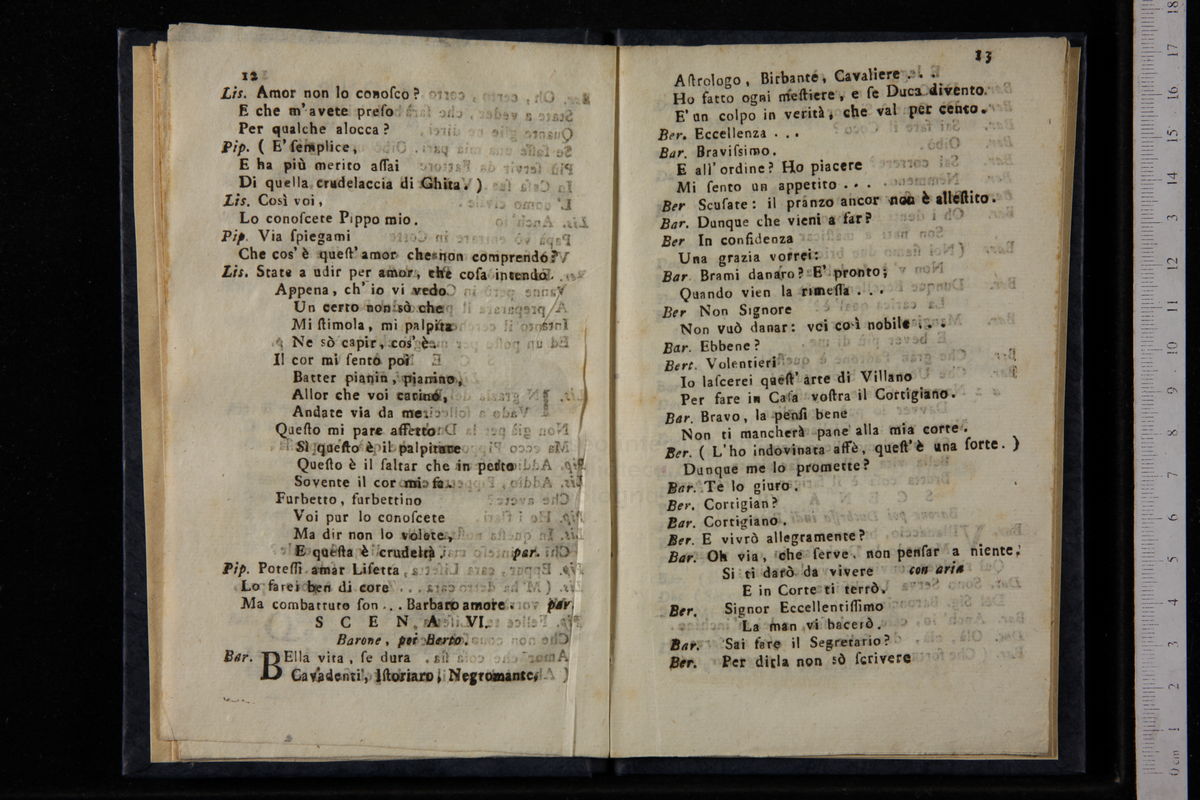 12
Lis. Amor non lo conoſco?
E che m'avete preſo
Per qualche alocca?
Pip. ( E' ſemplice,
E ha più merito aſſai
Di quella crudelaccia di Ghita. )
Lis. Così voi,
Lo conoſcete Pippo mio.
Pip. Via ſpiegami
Che cos' è queſt' amor che non comprendo?
Lis. State a udir per amor, che coſa intendo.
Appena, ch' io vi vedo
Un certo non sò che
Mi ſtimola, mi palpita
Ne sò capir, cos' è.
Il cor mi ſento poi
Batter pianin, pianino,
Allor che voi carino,
Andate via da me:
Queſto mi pare affetto
Sì queſto è il palpitare
Queſto è il ſaltar che in petto
Sovente il cor mi fa.
Furbetto, furbettino
Voi pur lo conoſcete
Ma dir non lo volete,
E queſta è crudeltà. par.
Pip. Poteſſi amar Liſetta
Lo farei ben di core
Ma combattuto ſon . . Barbaro amore. par.
SCENA VI.
Barone, poi Berto.
Bar. BElla vita, ſe dura
Cavadenti, Iſtoriaro, Negromante,
13
Aſtrologo, Birbante, Cavaliere . . .
Ho fatto ogni meſtiere, e ſe Duca divento.
E' un colpo in verità, che val per cento.
Ber. Eccellenza . . .
Bar. Braviſsimo.
E all' ordine? Ho piacere
Mi ſento un appetito . . .
Ber Scuſate: il pranzo ancor non è alleſtito.
Bar. Dunque che vieni a far?
Ber In confidenza
Una grazia vorrei:
Bar Brami danaro? E' pronto;
Quando vien la rimeſſa . . .
Ber Non Signore
Non vuò danar: voi così nobile . . .
Bar. Ebbene?
Bert. Volentieri
Io laſcerei queſt' arte di Villano
Per fare in Caſa voſtra il Cortigiano.
Bar. Bravo, la penſi bene
Non ti mancherà pane alla mia corte.
Ber. ( L'ho indovinata affè, queſt' è una ſorte. )
Dunque me lo promette?
Bar. Te lo giuro.
Ber. Cortigian?
Bar. Cortigiano.
Ber. E vivrò allegramente?
Bar. Oh via, che ſerve, non penſar a niente,
Si ti darò da vivere con aria
E in Corte ti terrò.
Ber. Signor Eccellentiſſimo
La man vi bacerò.
Bar. Sai fare il Segretario?
Ber. Per dirla non sò ſcrivere